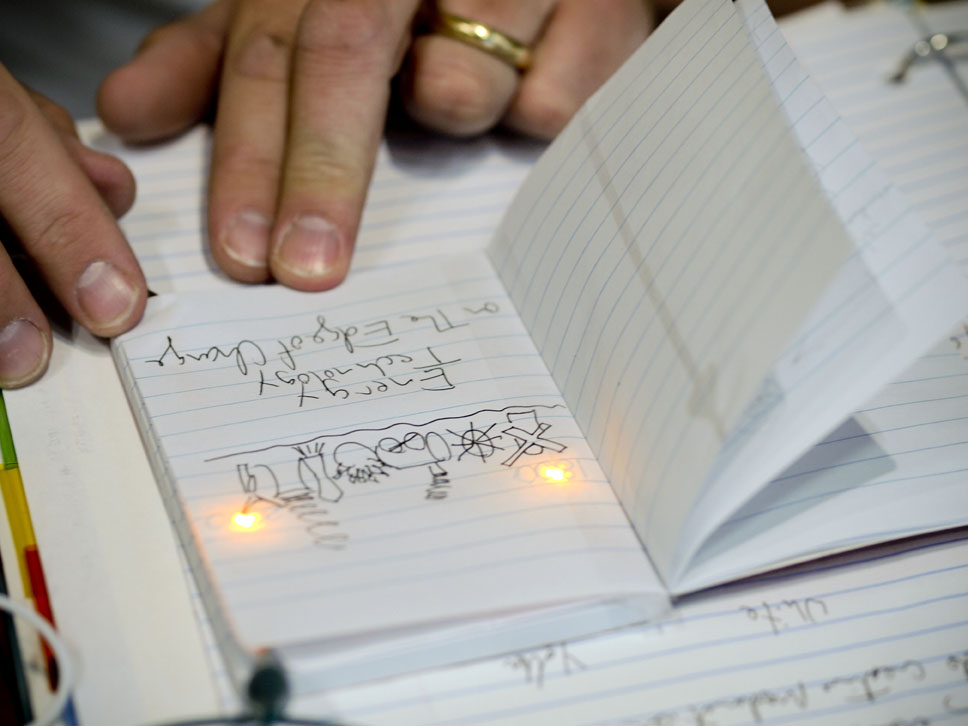 Energy
Technology
on The Edge of Change
Yello
White